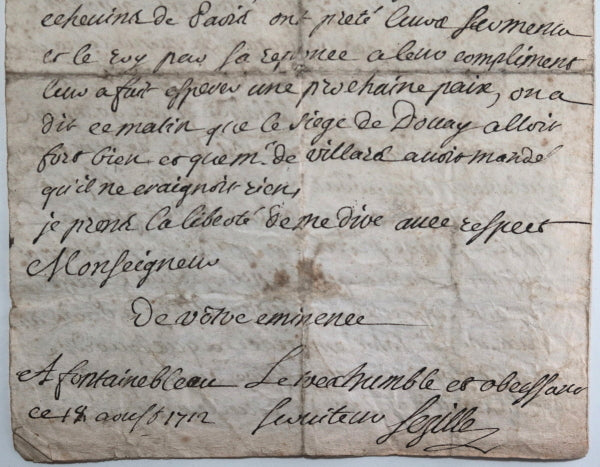 echevins de Paris ont preté leurs sermens
et le roy par sa reponce a leur compliment
leur a fait esperer une prochaine paix, on a
dit ce matin que le siege de Douay alloit
fort bien et que mr. de villars avoit mandé
qu'il ne craignoit rien,
je prens la liberté de me dire avec respect
Monseigneur
De vôtre eminence
A fontainebleau Le tres humble et obeissant
ce 18 aoust 1712 serviteur